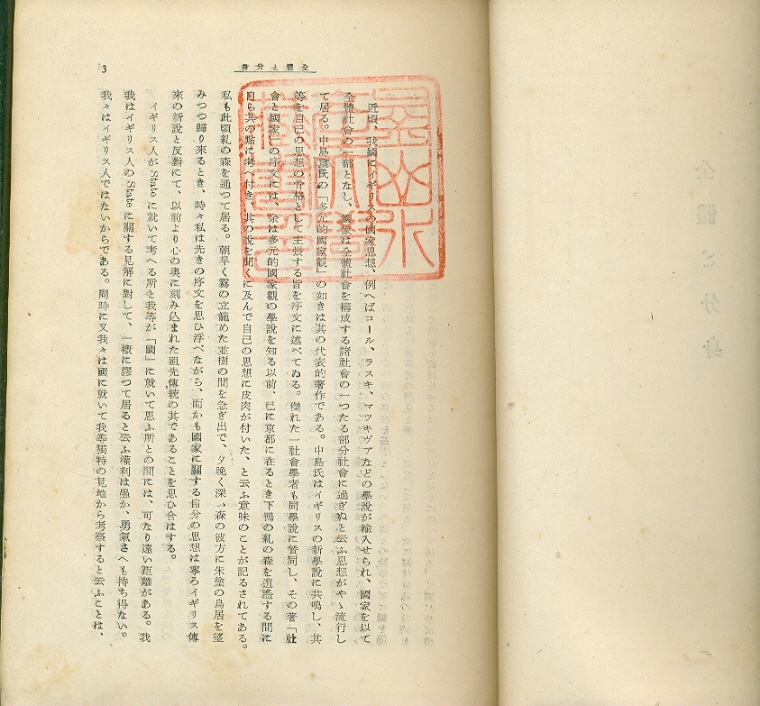 全體と分身
3
近頃、我國にイギリスの國家思想、例へばコール、ラスキ、マツキヴアなどの學說が輸入せられ、國家を以て
全體社會の一部となし、國家は全體社會を構成する諸社會の一つたる部分社會に過ぎぬと云ふ思想がやゝ流行し
て居る。中島氏の「多元的國家觀」の如きは其の代表的著作である。中島氏はイギリスの新學說に共鳴し、其
等を自己の思想の骨格として主張する旨を序文に述べてゐる。傑れた一社會學者も同學說に贊同し、その著「社
會と國家」の序文には、余は多元的國家觀の學說を知る以前、已に京都に在るとき下鴨の糺の森を逍遙する間に
自ら其の點に考へ付き、其の說を聞くに及んで自己の思想に皮肉が付いた、と云ふ意味のことが記るされてある。
私も此頃糺の森を通つて居る。朝早く霧の立籠めた並樹の間を急ぎ出で、夕晚く深い森の彼方に朱塗の鳥居を望
みつつ歸り來るとき、時々私は先きの序文を思ひ浮べながら、而かも國家に關する自分の思想は寧ろイギリス傳
來の新說と反對にて、以前より心の奧に刻み込まれた祖先傳統の其であることを思ひ合はする。
イギリス人が State に就いて考へる所と我等が「國」に就いて思ふ所との間には、可なり遠い距離がある。我
我はイギリス人の State に關する見解に對して、一槪に謬つて居ると云ふ權利は愚か、勇氣さへも持ち得ない。
我々はイギリス人ではないからである。同時に又我々は國に就いて我等獨特の見地から考察すると云ふことは、
全體と分身